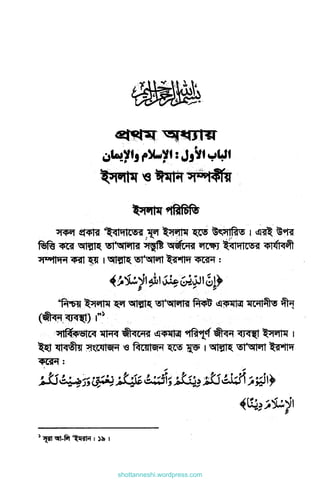 بسم الله الرحمن الرحيم
প্রথম অধ্যায়
الباب الأول : الإسلام والإيمان
ইসলাম ও ঈমান সম্পর্কীয়
ইসলাম পরিচিতি
সকল প্রকার ‘ইবাদাতের মূল ইসলাম হতে উৎসারিত। এরই উপর
ভিত্তি করে আল্লাহ তা‘আলার সন্তুষ্টি অর্জনের লক্ষ্যে ইবাদাতের কার্যাবলী
সম্পাদন করা হয়। আল্লাহ তা‘আলা ইরশাদ করেন :
﴿إِنَّ الدِّينَ عِندَ اللهِ الْإِسْلَامُ﴾
“নিশ্চয় ইসলাম হল আল্লাহ তা‘আলার নিকট একমাত্র মনোনীত দীন
(জীবন ব্যবস্থা) ।”³
সার্বিকভাবে মানব জীবনের একমাত্র পরিপূর্ণ জীবন ব্যবস্থা ইসলাম।
ইহা যাবতীয় সংযোজন ও বিয়োজন হতে মুক্ত। আল্লাহ তা‘আলা ইরশাদ
করেন :
﴿الْيَوْمَ أَكْمَلْتُ لَكُمْ دِينَكُمْ وَأَتْمَمْتُ عَلَيْكُمْ نِعْمَتِي وَرَضِيتُ لَكُمُ
الْإِسْلَامَ دِينًا﴾
³ সূরা আ-লি ‘ইমরান। ১৯।
shottanneshi.wordpress.com